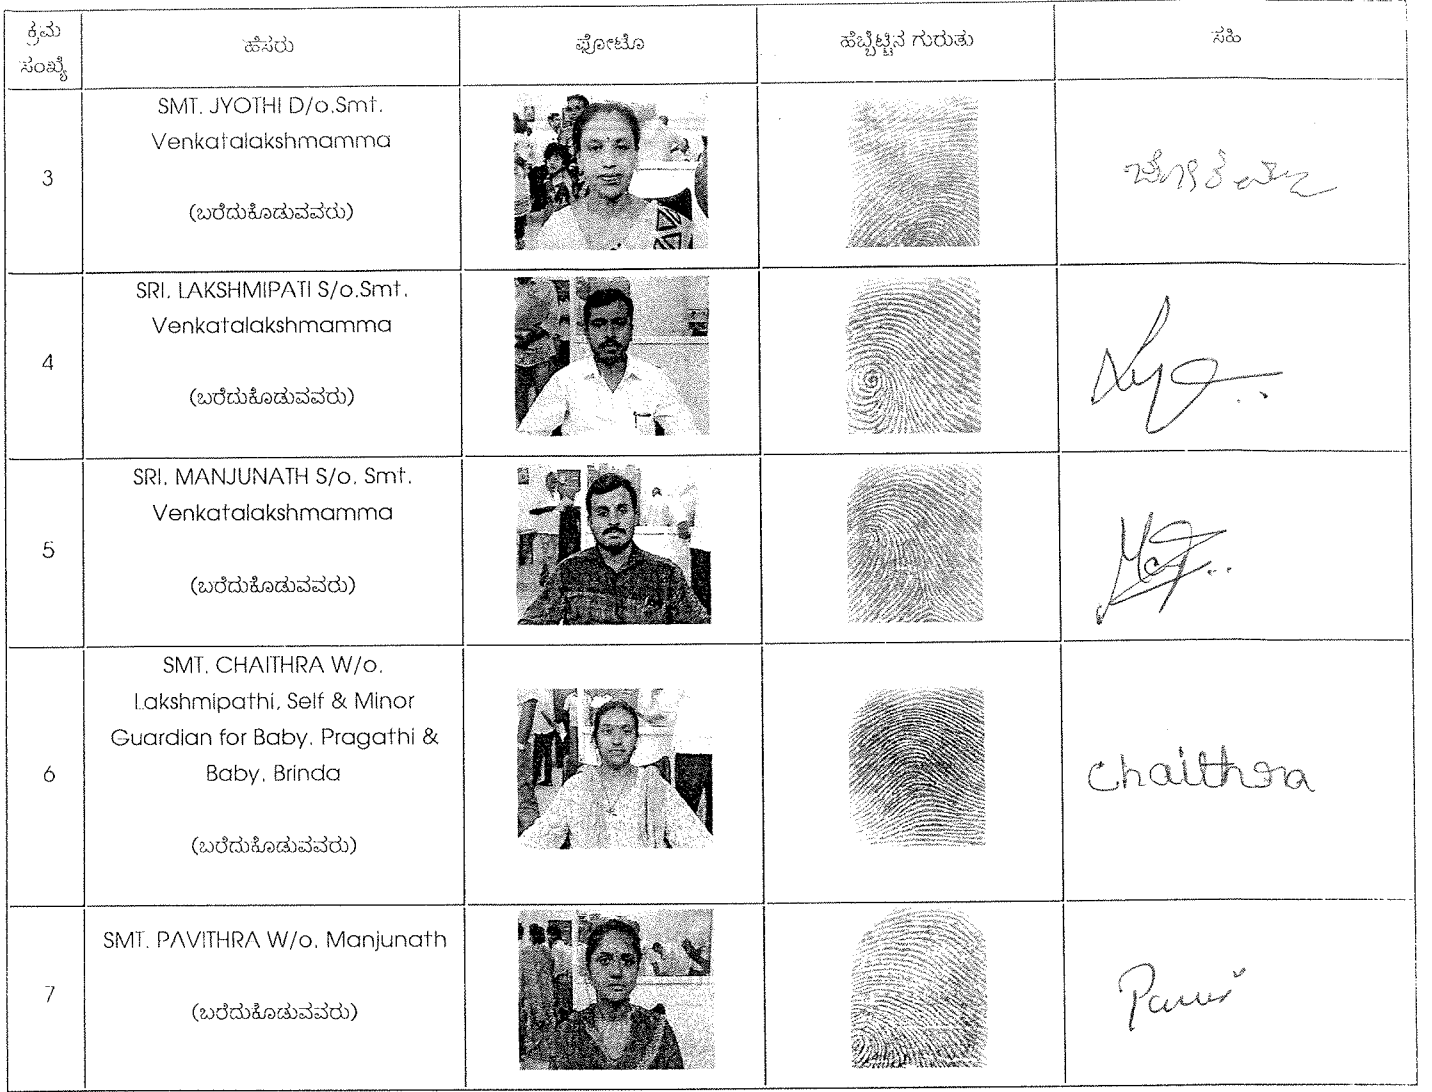 ಕ್ರಮ
ಸಂಖ್ಯೆ
ಹೆಸರು
ಫೋಟೊ
ಹೆಬ್ಬೆಟ್ಟಿನ ಗುರುತು
ಸಹಿ
3
SMT. JYOTHI D/o.Smt.
Venkatalakshmamma
(ಬರೆದುಕೊಡುವವರು)
4
SRI. LAKSHMIPATI S/o.Smt.
Venkatalakshmamma
(ಬರೆದುಕೊಡುವವರು)
5
SRI. MANJUNATH S/o. Smt.
Venkatalakshmamma
(ಬರೆದುಕೊಡುವವರು)
6
SMT. CHAITHRA W/o.
Lakshmipathi, Self & Minor
Guardian for Baby. Pragathi &
Baby. Brinda
(ಬರೆದುಕೊಡುವವರು)
Chaithra
7
SMT. PAVITHRA W/o. Manjunath
(ಬರೆದುಕೊಡುವವರು)